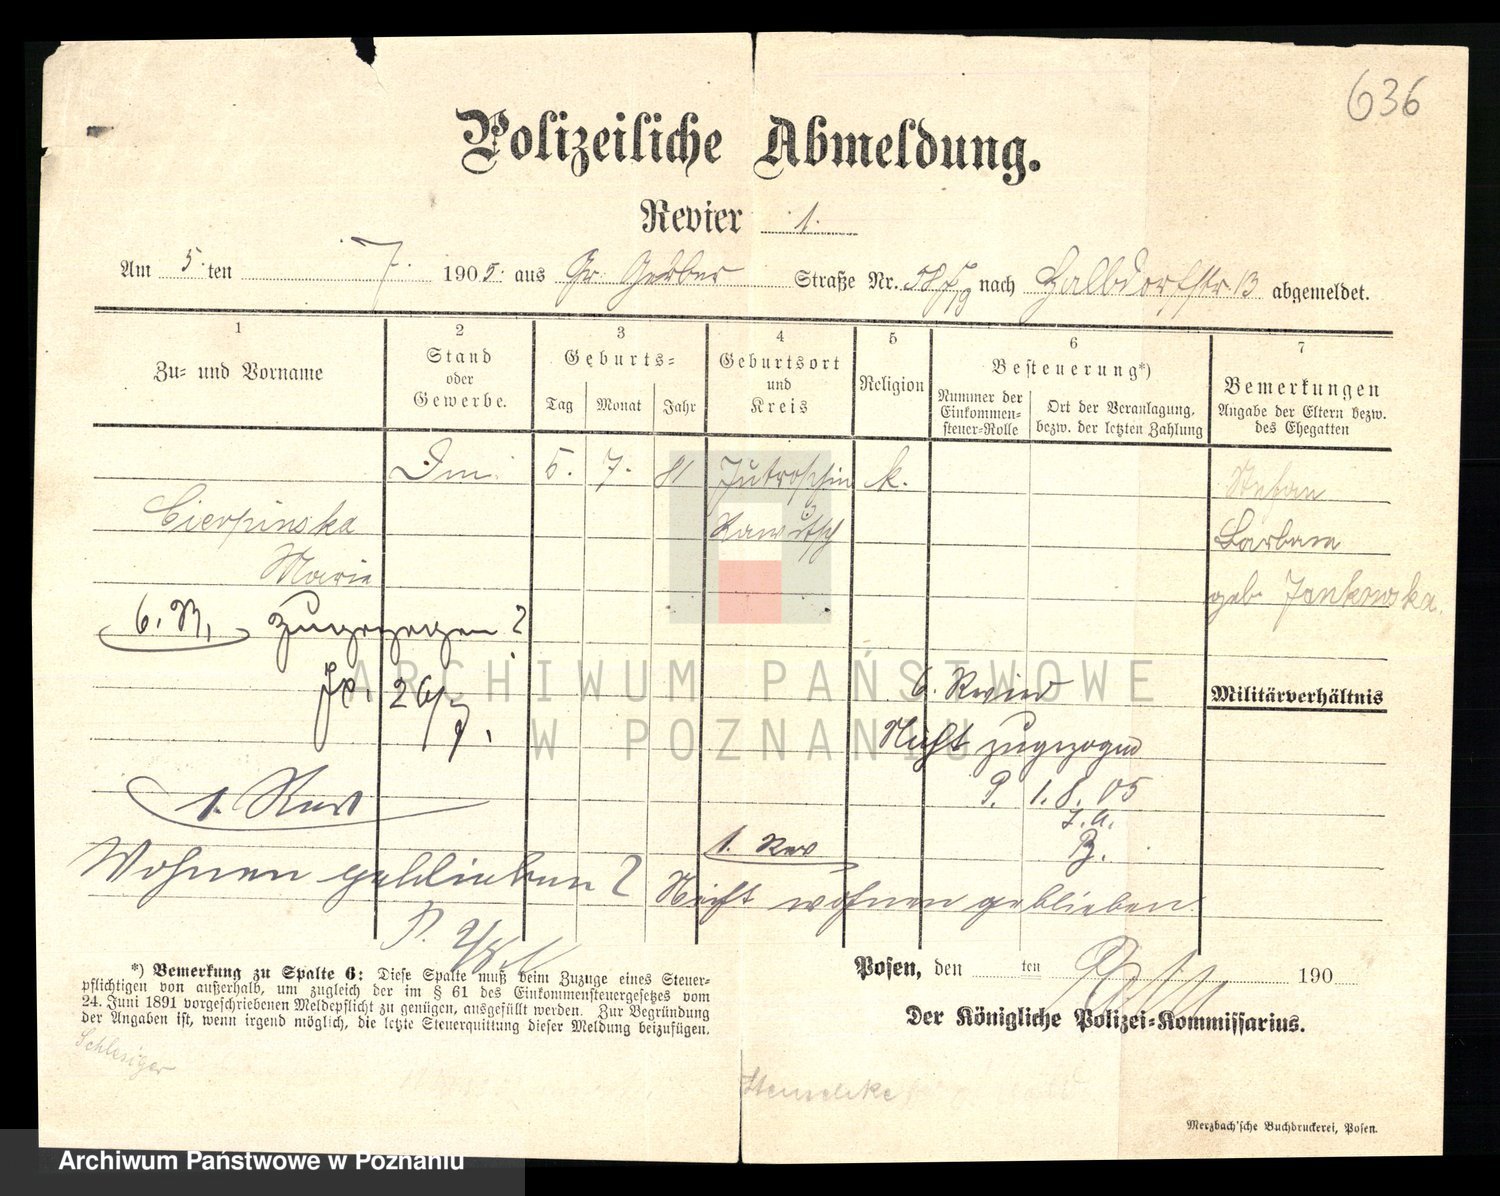 636
Polizeiliche Abmeldung.
Revier 1.
Am 5. ten 7. 1905. aus Gr. Gerber Straße Nr. nach Halbdorfstr. 13 abgemeldet.
1
Zu- und Vorname
2
Stand
oder
Gewerbe.
3
Geburts-
Tag Monat Jahr
4
Geburtsort
und
Kreis
5
Religion
6
Besteuerung*)
Nummer der
Einkommen-
steuer-Rolle
Ort der Veranlagung,
bezw. der letzten Zahlung
7
Bemerkungen
Angabe der Eltern bezw.
des Ehegatten
5. 7. 81 Jutroschin k. Stefan
Cierpinska Rawitsch Barbara
Marie geb. Jankowska.
6. R. zugezogen?
26/7.
6. Revier
Militärverhältnis
Nicht zugezogen
P. 1.8.05
J.A.
B.
1. Rev
1. Rev
Wohnen geblieben?
Nicht wohnen geblieben.
*) Bemerkung zu Spalte 6: Diese Spalte muß beim Zuzuge eines Steuer-
pflichtigen von außerhalb, um zugleich der im § 61 des Einkommensteuergesetzes vom
24. Juni 1891 vorgeschriebenen Meldepflicht zu genügen, ausgefüllt werden. Zur Begründung
der Angaben ist, wenn irgend möglich, die letzte Steuerquittung dieser Meldung beizufügen.
Posen, den ten 190
Der Königliche Polizei-Kommissarius.
Schlesiger
Merzbach'sche Buchdruckerei, Posen.
ARCHIWUM PAŃSTWOWE
W POZNANIU
Archiwum Państwowe w Poznaniu